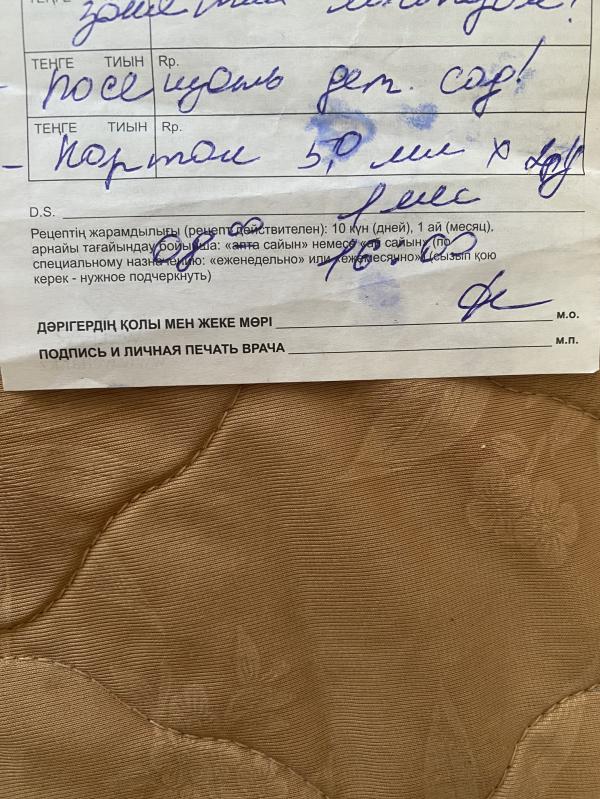 занятия логопедом!
ТЕҢГЕ ТИЫН Rp.
посещать дет. сад!
ТЕҢГЕ ТИЫН Rp.
- 5,0 мл х 2р/
D.S. 1 мес
Рецептің жарамдылығы (рецепт действителен): 10 күн (дней), 1 ай (месяц),
арнайы тағайындау бойынша: «апта сайын» немесе «ай сайын» (по
специальному назначению: «еженедельно» или «ежемесячно») (сызып қою
керек - нужное подчеркнуть)
08:00 16:00
ДӘРІГЕРДІҢ ҚОЛЫ МЕН ЖЕКЕ МӨРІ м.о.
ПОДПИСЬ И ЛИЧНАЯ ПЕЧАТЬ ВРАЧА м.п.